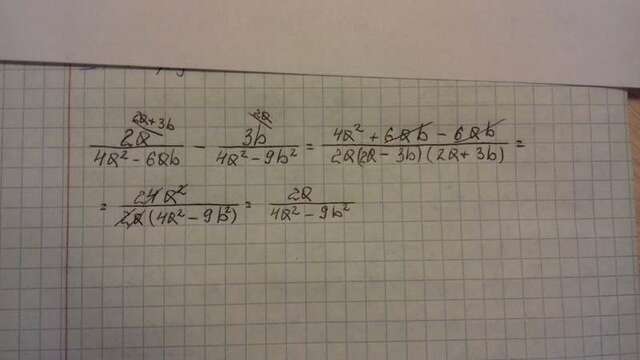 2a+3b 2a
2a/(4a² - 6ab) - 3b/(4a² - 9b²) = (4a² + 6ab - 6ab)/(2a(2a - 3b)(2a + 3b)) =
= 24a²/(2a(4a² - 9b²)) = 2a/(4a² - 9b²)